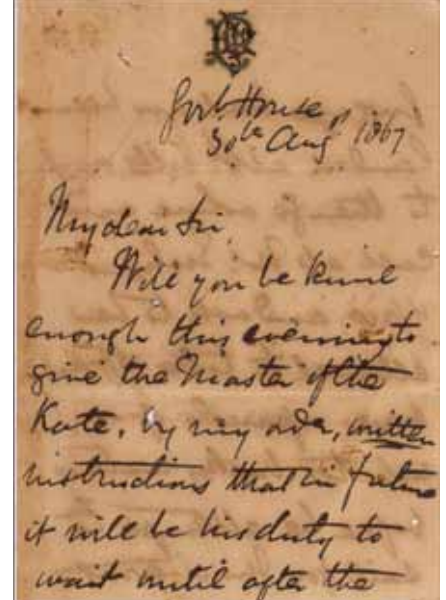 Govt House
30th Aug 1867
My dear Sir,
Will you be kind
enough this evening to
give the Master of the
Kate, by my order, written
instructions that in future
it will be his duty to
wait until after the